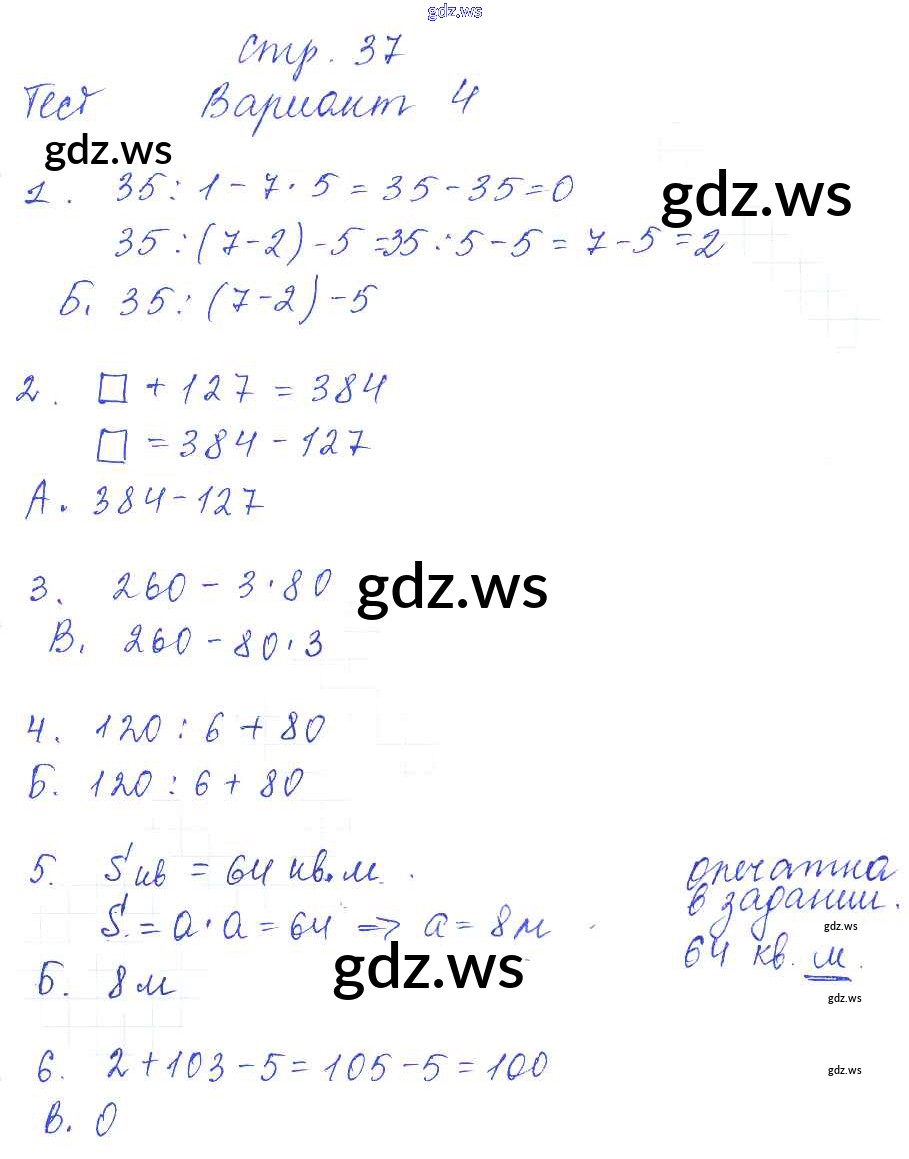 gdz.ws
Стр. 37
Тест Вариант 4
gdz.ws
1. 35 : 1 - 7 · 5 = 35 - 35 = 0
gdz.ws
35 : (7 - 2) - 5 = 35 : 5 - 5 = 7 - 5 = 2
Б. 35 : (7 - 2) - 5
2. □ + 127 = 384
□ = 384 - 127
А. 384 - 127
3. 260 - 3 · 80
gdz.ws
В. 260 - 80 · 3
4. 120 : 6 + 80
Б. 120 : 6 + 80
5. Sкв = 64 кв.м.
S = a · a = 64 => a = 8 м
Б. 8 м
gdz.ws
опечатка
в задании.
gdz.ws
64 кв. м.
gdz.ws
6. 2 + 103 - 5 = 105 - 5 = 100
gdz.ws
В. 0